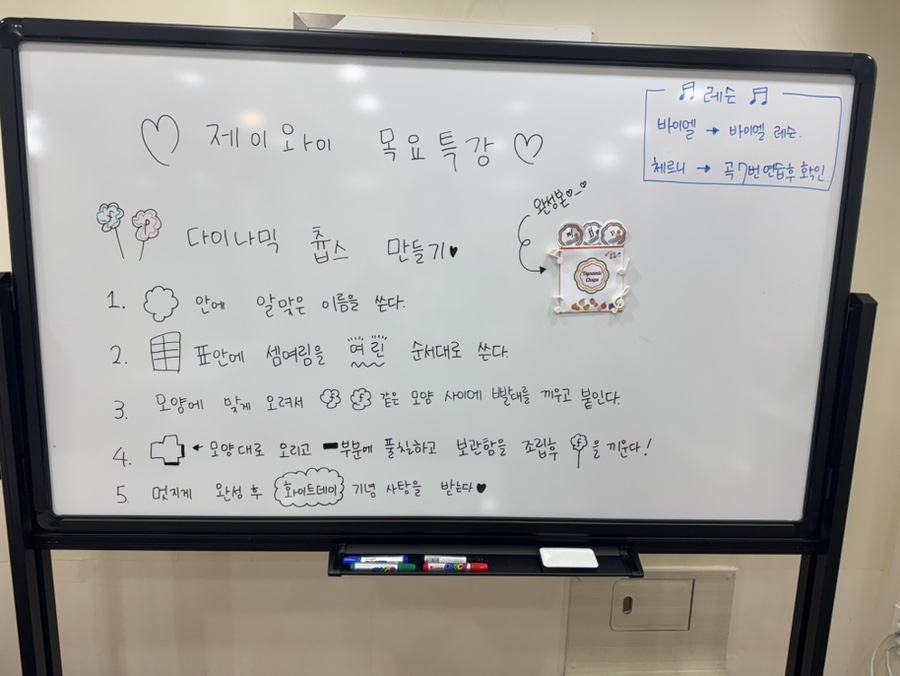 ♡ 제이와이 목요특강 ♡
♫ 레슨 ♫
바이엘 → 바이엘 레슨.
체르니 → 곡 7번 연습후 확인.
완성본♡-♡
Dynamic
Chupa
다이나믹 츕스 만들기♥
1. 안에 알맞은 이름을 쓴다.
2. 표안에 셈여림을 여린 순서대로 쓴다.
3. 모양에 맞게 오려서 f f 같은 모양 사이에 빨대를 끼우고 붙인다.
4. ← 모양대로 오리고 ▬부분에 풀칠하고 보관함을 조립후 f 을 끼운다!
5. 멋지게 완성 후 화이트데이 기념 사탕을 받는다♥